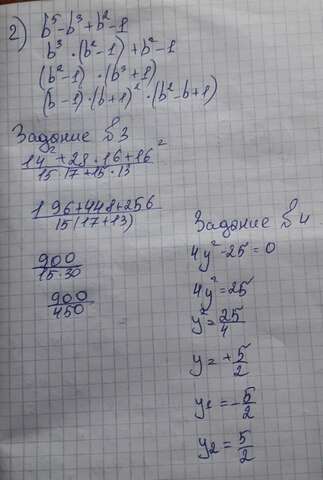 2) b⁵-b³+b²-1
b³·(b²-1)+b²-1
(b²-1)·(b³+1)
(b-1)·(b+1)²·(b²-b+1)
Задание №3
14²+28·16+16²
15·17+15·13
196+448+256
15(17+13)
900
15·30
900
450
Задание №4
4y²-25=0
4y²=25
y²=25/4
y=+5/2
y1=-5/2
y2=5/2